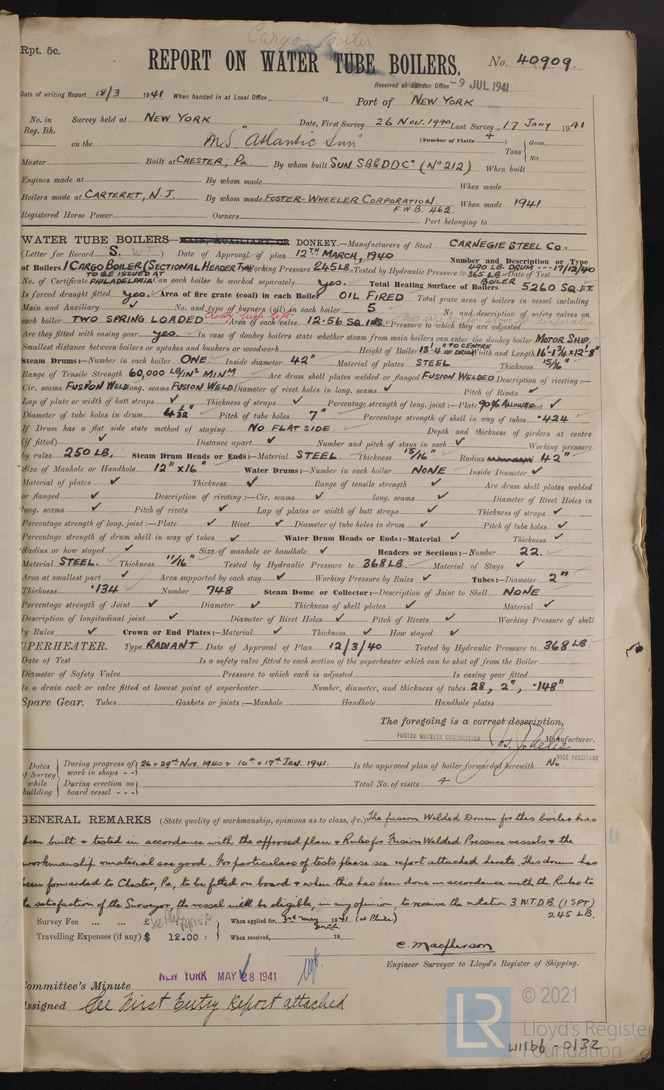 Cargo Boiler
Rpt. 5c.
REPORT ON WATER TUBE BOILERS. No. 40909.
Received at London Office -9 JUL 1941
Date of writing Report 18/3 1941 When handed in at Local Office 19 Port of NEW YORK
No. in Reg. Bk. Survey held at NEW YORK Date, First Survey 26 Nov. 1940, Last Survey 17 JANY 1941
on the M.S "Atlantic Sun" (Number of Visits 4 Tons Gross Net
Master Built at CHESTER, Pa. By whom built SUN SB&DDCo (No 212) When built
Engines made at By whom made When made
Boilers made at CARTERET, N.J. By whom made FOSTER-WHEELER CORPORATION F.W.B. 462. When made 1941
Registered Horse Power Owners Port belonging to
WATER TUBE BOILERS—MAIN, AUXILIARY, OR DONKEY.—Manufacturers of Steel CARNEGIE STEEL Co.
(Letter for Record S. WT) Date of Approval of plan 12TH MARCH, 1940 Number and Description or Type
of Boilers 1 CARGO BOILER (SECTIONAL HEADER TYPE) Working Pressure 245 LB. Tested by Hydraulic Pressure to 490 LB. DRUM --- 365 LB BOILER Date of Test 17/12/40
No. of Certificate TO BE ISSUED AT PHILADELPHIA Can each boiler be worked separately yes. Total Heating Surface of Boilers 5260 SQ.FT.
Is forced draught fitted yes. Area of fire grate (coal) in each Boiler OIL FIRED Total grate area of boilers in vessel including
Main and Auxiliary ✓ No. and type of burners (oil) in each boiler 5 No. and description of safety valves on
each boiler TWO SPRING LOADED Area of each valve 12.56 SQ. INS Pressure to which they are adjusted
Are they fitted with easing gear yes. In case of donkey boilers state whether steam from main boilers can enter the donkey boiler MOTOR SHIP.
Smallest distance between boilers or uptakes and bunkers or woodwork Height of Boiler 13'4" TO CENTRE OF DRUM Width and Length 16'-1¾" x 12'-8"
Steam Drums:—Number in each boiler ONE Inside diameter 42" Material of plates STEEL Thickness 15/16"
Range of Tensile Strength 60,000 LB/IN² MINM Are drum shell plates welded or flanged FUSION WELDED Description of riveting:—
Cir. seams FUSION WELD long. seams FUSION WELD Diameter of rivet holes in long. seams ✓ Pitch of Rivets ✓
Lap of plate or width of butt straps ✓ Thickness of straps ✓ Percentage strength of long. joint:—Plate 90% ALLOWED Rivet ✓
Diameter of tube holes in drum 4 1/32" Pitch of tube holes 7" Percentage strength of shell in way of tubes .424
If Drum has a flat side state method of staying NO FLAT SIDE Depth and thickness of girders at centre
(if fitted) ✓ Distance apart ✓ Number and pitch of stays in each ✓ Working pressure
by rules 250 LB. Steam Drum Heads or Ends:—Material STEEL. Thickness 15/16" Radius 42"
Size of Manhole or Handhole 12" x 16" Water Drums:—Number in each boiler NONE Inside Diameter ✓
Material of plates ✓ Thickness ✓ Range of tensile strength ✓ Are drum shell plates welded
or flanged ✓ Description of riveting:—Cir. seams ✓ long. seams ✓ Diameter of Rivet Holes in
long. seams ✓ Pitch of rivets ✓ Lap of plates or width of butt straps ✓ Thickness of straps ✓
Percentage strength of long. joint:—Plate ✓ Rivet ✓ Diameter of tube holes in drum ✓ Pitch of tube holes ✓
Percentage strength of drum shell in way of tubes ✓ Water Drum Heads or Ends:—Material ✓ Thickness ✓
Radius or how stayed ✓ Size of manhole or handhole ✓ Headers or Sections:—Number 22.
Material STEEL. Thickness 11/16" Tested by Hydraulic Pressure to 368 LB. Material of Stays ✓
Area at smallest part ✓ Area supported by each stay ✓ Working Pressure by Rules ✓ Tubes:—Diameter 2"
Thickness .134 Number 748 Steam Dome or Collector:—Description of Joint to Shell NONE
Percentage strength of Joint ✓ Diameter ✓ Thickness of shell plates ✓ Material ✓
Description of longitudinal joint ✓ Diameter of Rivet Holes ✓ Pitch of Rivets ✓ Working Pressure of shell
by Rules ✓ Crown or End Plates:—Material ✓ Thickness ✓ How stayed ✓
UPERHEATER. Type RADIANT Date of Approval of Plan 12/3/40 Tested by Hydraulic Pressure to 368 LB.
Date of Test Is a safety valve fitted to each section of the superheater which can be shut off from the Boiler
Diameter of Safety Valve Pressure to which each is adjusted Is easing gear fitted
Is a drain cock or valve fitted at lowest point of superheater Number, diameter, and thickness of tubes 28, 2", .148"
Spare Gear. Tubes Gaskets or joints:—Manhole Handhole Handhole plates
The foregoing is a correct description,
FOSTER WHEELER CORPORATION Manufacturer.
VICE PRESIDENT
Dates of Survey while building During progress of work in shops -- 26 + 29th Nov. 1940 + 10th + 17th JAN. 1941. Is the approved plan of boiler forwarded herewith No.
During erection on board vessel --- Total No. of visits 4
GENERAL REMARKS (State quality of workmanship, opinions as to class, &c.) The fusion Welded Drum for this boiler has
been built + tested in accordance with the approved plan + Rules for Fusion Welded Pressure vessels + the
workmanship + material are good. For particulars of tests please see report attached hereto. This drum has
been forwarded to Chester, Pa, to be fitted on board + when this has been done in accordance with the Rules to
the satisfaction of the Surveyor, the vessel will be eligible, in my opinion, to receive the notation 3 W.T.D.B. (1 SPT)
245 LB.
Survey Fee ... ... When applied for, 3rd May 1941. (at Phila)
Travelling Expenses (if any) $ 12.00 : When received, 19
C. Macpherson
Engineer Surveyor to Lloyd's Register of Shipping.
NEW YORK MAY 28 1941
Committee's Minute
Assigned See First Entry Report attached
LR © 2021
Lloyd's Register
Foundation
W1166-0132